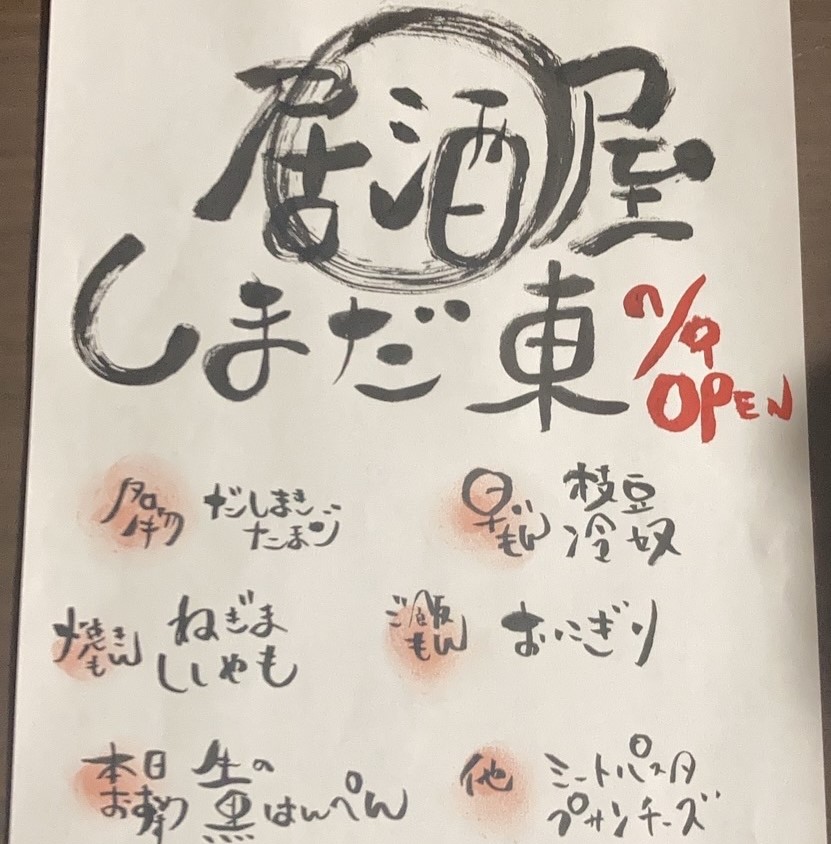 居酒屋
しまだ東
7/9
OPEN
名物
だしまき
たまご
早どいもん
枝豆
冷奴
焼きもん
ねぎま
ししゃも
ご飯もん
おにぎり
本日
おすすめ
生の
黒はんぺん
他
ミートパスタ
プサンチーズ